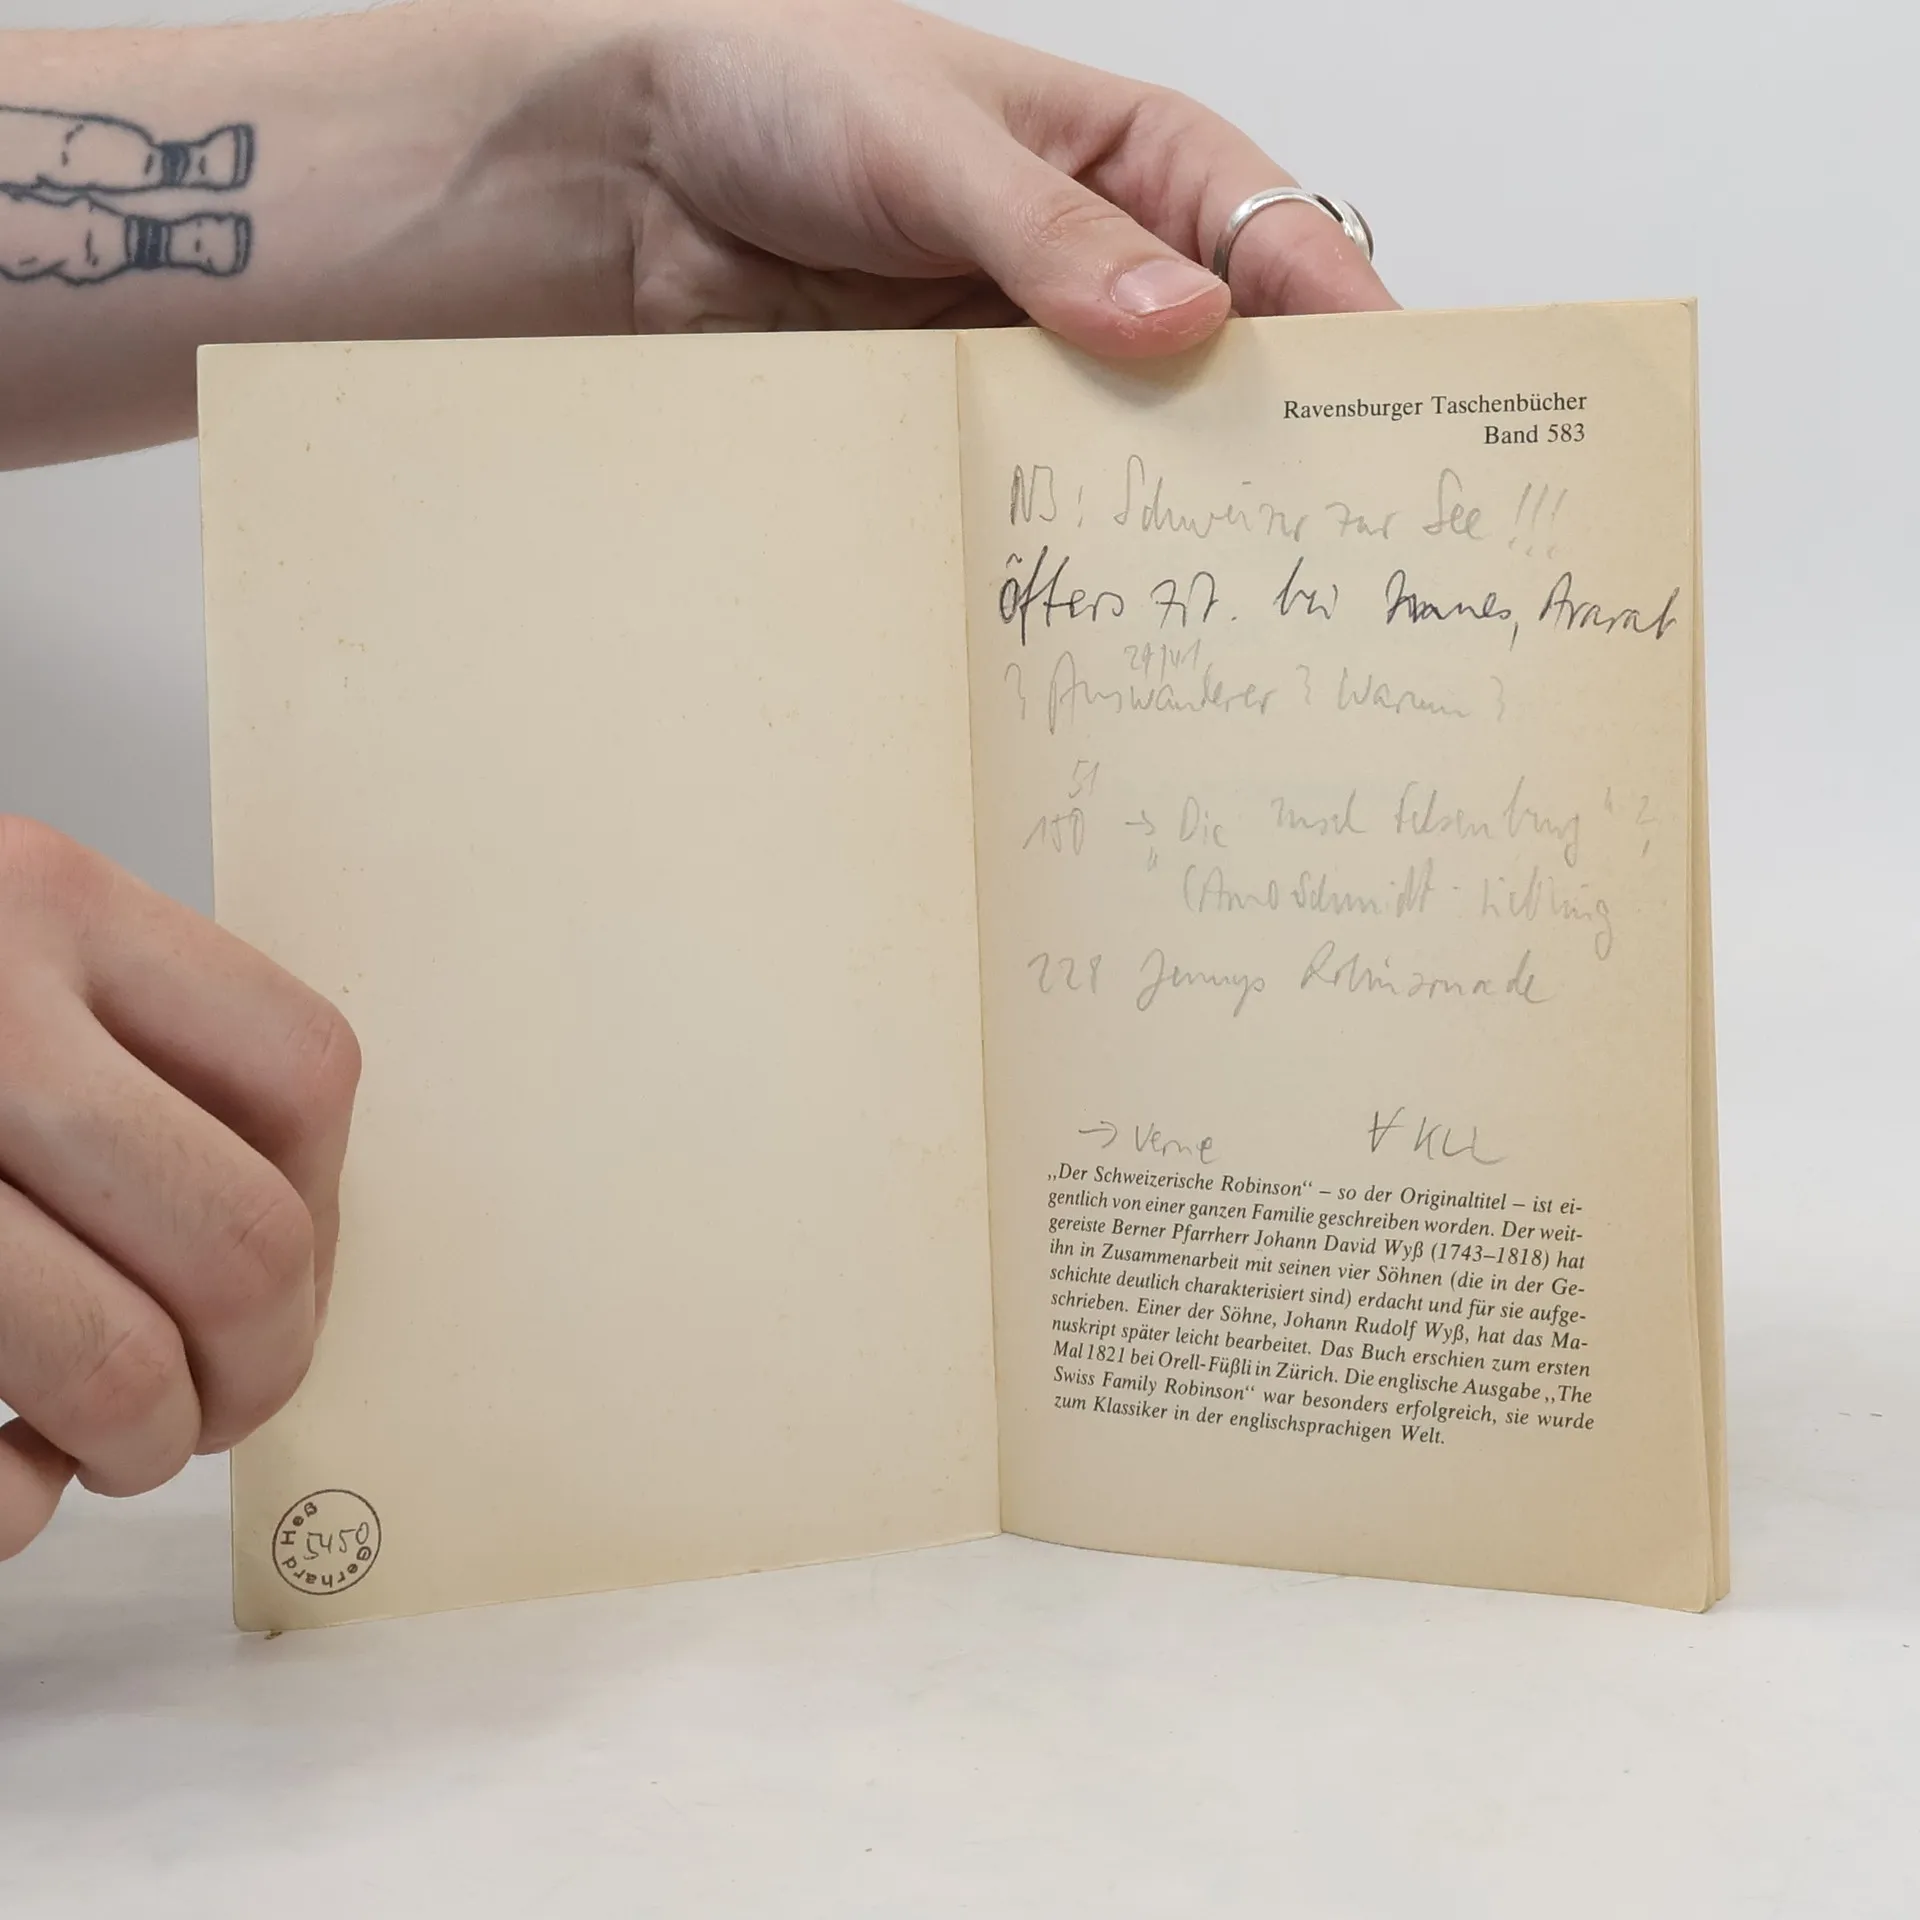 Ravensburger Taschenbücher
Band 583
NB: Schweizer zur See!!!
öfters zit. bei Ararat
24/41
? Auswanderer? Warum?
51
150 → „Die Insel Felsenburg“?
(Arno Schmidt-Liebling
228 Jennys Robinsonade
→ Verne ∀ KLL
„Der Schweizerische Robinson“ – so der Originaltitel – ist ei-
gentlich von einer ganzen Familie geschreiben worden. Der weit-
gereiste Berner Pfarrherr Johann David Wyß (1743–1818) hat
ihn in Zusammenarbeit mit seinen vier Söhnen (die in der Ge-
schichte deutlich charakterisiert sind) erdacht und für sie aufge-
schrieben. Einer der Söhne, Johann Rudolf Wyß, hat das Ma-
nuskript später leicht bearbeitet. Das Buch erschien zum ersten
Mal 1821 bei Orell-Füßli in Zürich. Die englische Ausgabe „The
Swiss Family Robinson“ war besonders erfolgreich, sie wurde
zum Klassiker in der englischsprachigen Welt.
Gerhard Heß
5450